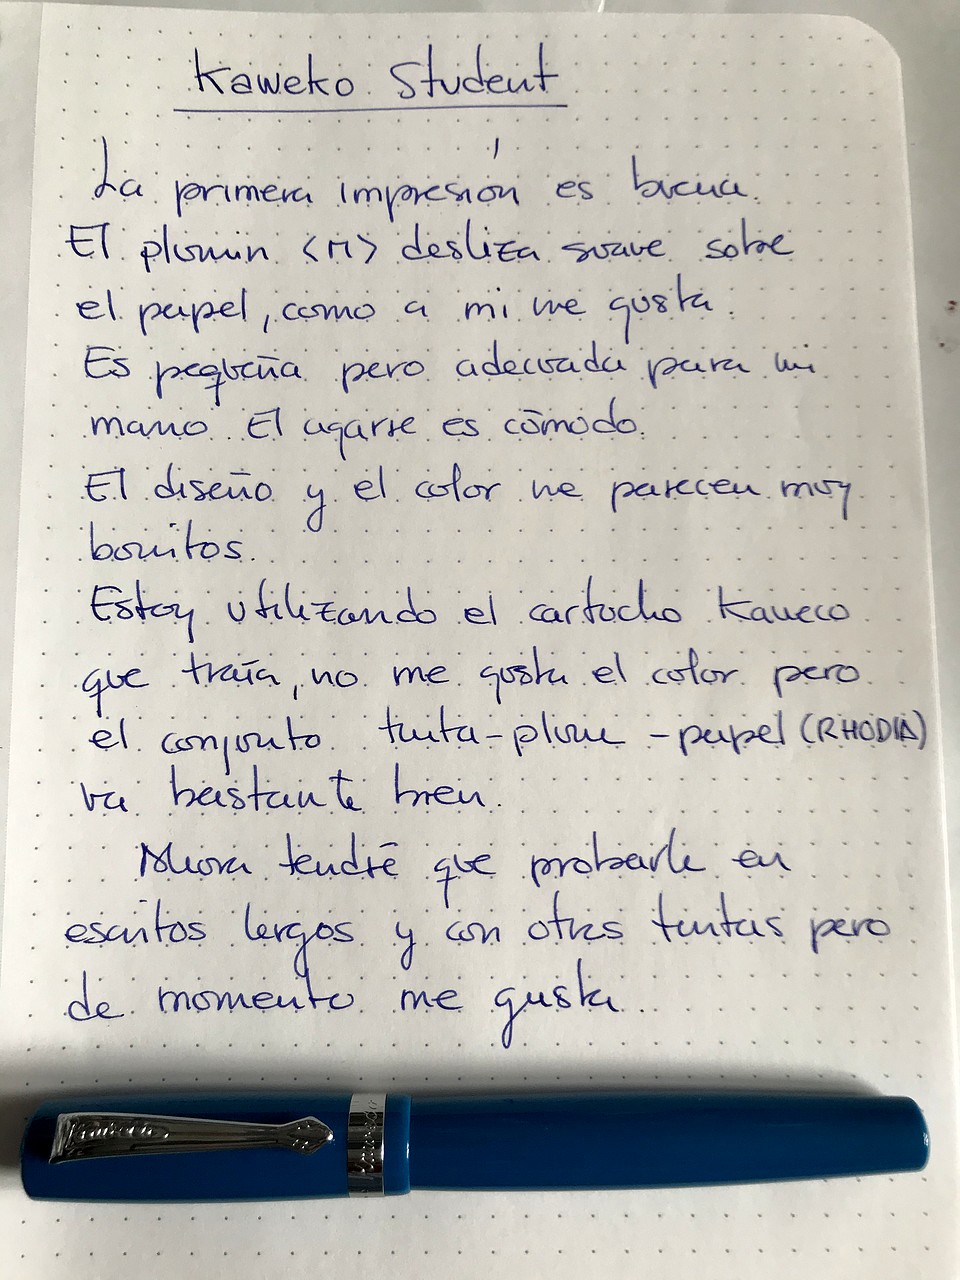 Kaweko Student
La primera impresión es buena.
El plumin <M> desliza suave sobre
el papel, como a mi me gusta.
Es pequeña pero adecuada para mi
mano. El agarre es cómodo.
El diseño y el color me parecen muy
bonitos.
Estoy utilizando el cartucho Kaweco
que traía, no me gusta el color pero
el conjunto tinta-pluma-papel (RHODIA)
va bastante bien.
Ahora tendré que probarla en
escritos largos y con otras tintas pero
de momento me gusta.
Kaweco
Kaweco